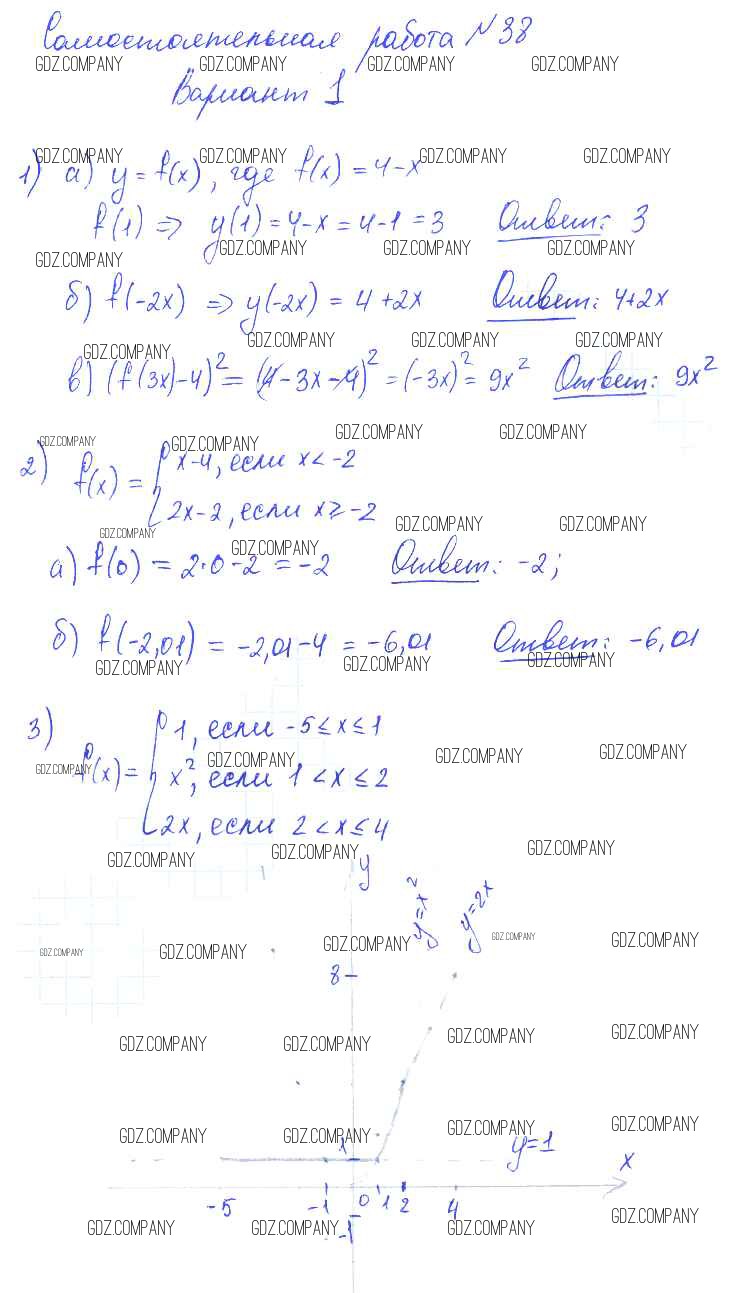 Самостоятельная работа №38
GDZ.COMPANY GDZ.COMPANY GDZ.COMPANY GDZ.COMPANY
Вариант 1
GDZ.COMPANY GDZ.COMPANY GDZ.COMPANY GDZ.COMPANY
1) а) y = f(x), где f(x) = 4-x
f(1) => y(1) = 4-x = 4-1 = 3 Ответ: 3
GDZ.COMPANY GDZ.COMPANY GDZ.COMPANY GDZ.COMPANY
б) f(-2x) => y(-2x) = 4+2x Ответ: 4+2x
GDZ.COMPANY GDZ.COMPANY GDZ.COMPANY GDZ.COMPANY
в) (f(3x)-4)² = (4-3x-4)² = (-3x)² = 9x² Ответ: 9x²
GDZ.COMPANY GDZ.COMPANY GDZ.COMPANY GDZ.COMPANY
2) f(x) = { x-4, если x < -2
2x-2, если x ⩾ -2
GDZ.COMPANY GDZ.COMPANY GDZ.COMPANY GDZ.COMPANY
а) f(0) = 2·0-2 = -2 Ответ: -2;
б) f(-2,01) = -2,01-4 = -6,01 Ответ: -6,01
GDZ.COMPANY GDZ.COMPANY GDZ.COMPANY
3) f(x) = { 1, если -5 ≤ x ≤ 1
GDZ.COMPANY GDZ.COMPANY GDZ.COMPANY GDZ.COMPANY
x², если 1 < x ≤ 2
2x, если 2 < x ≤ 4
GDZ.COMPANY GDZ.COMPANY GDZ.COMPANY
y
y=x² y=2x
GDZ.COMPANY GDZ.COMPANY GDZ.COMPANY GDZ.COMPANY GDZ.COMPANY
8
GDZ.COMPANY GDZ.COMPANY GDZ.COMPANY GDZ.COMPANY
GDZ.COMPANY GDZ.COMPANY GDZ.COMPANY GDZ.COMPANY
y=1
x
-5 -1 0 1 2 4
GDZ.COMPANY GDZ.COMPANY GDZ.COMPANY GDZ.COMPANY
-1